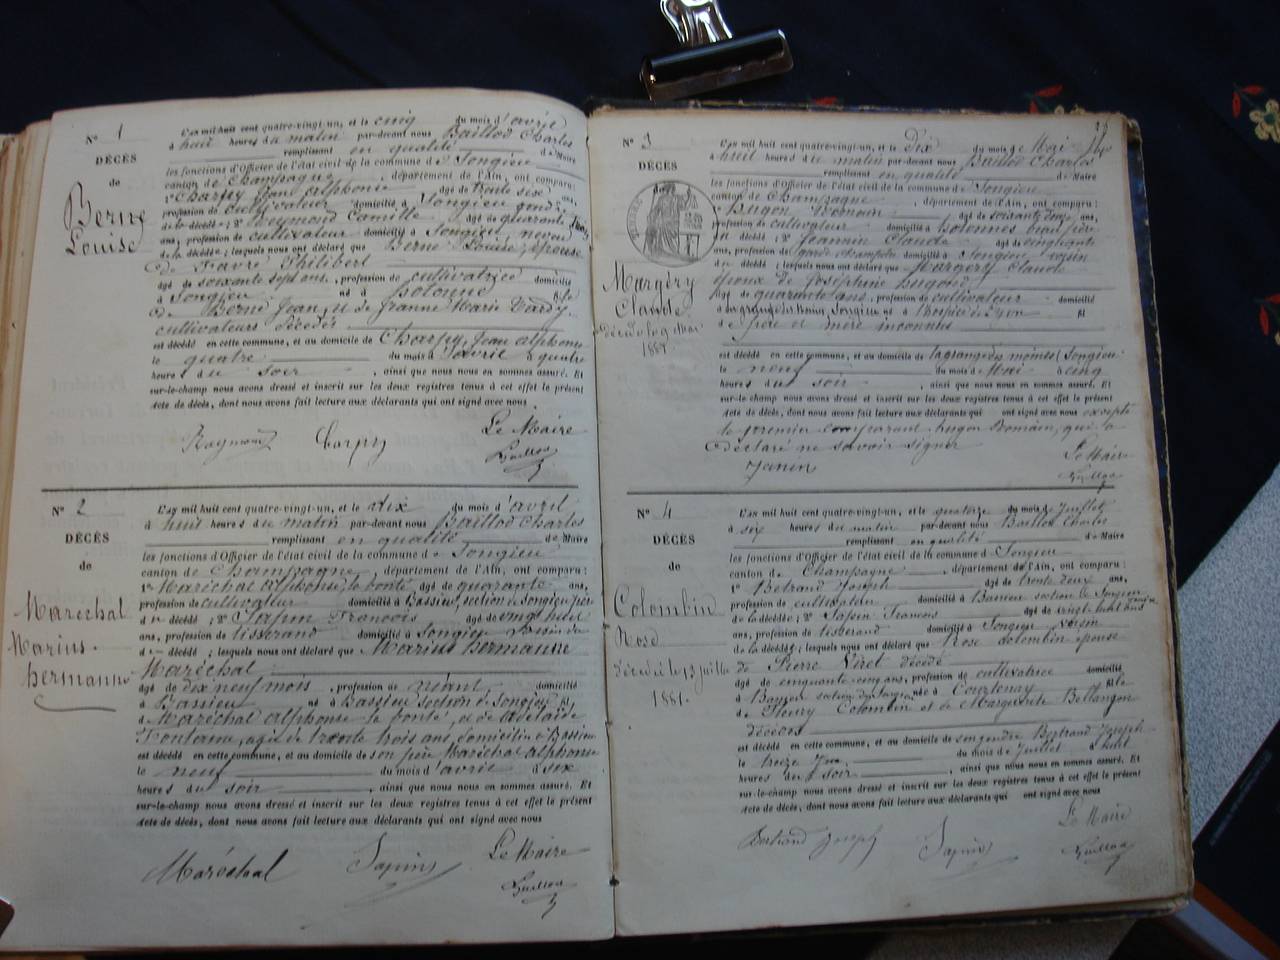 N° 1
DÉCÈS
de
Berne
Louise
L'an mil huit cent quatre-vingt-un, et le cinq du mois d'avril
à huit heures du matin par-devant nous Baillod Charles
remplissant en qualité de Maire
les fonctions d'Officier de l'état civil de la commune de Songieu
canton de Champagne, département de l'Ain, ont comparu:
1° Charpy Jean alphonse âgé de trente six
profession de cultivateur domicilié à Songieu
de la décédée; 2° Reymond Camille âgé de quarante
ans, profession de cultivateur domicilié à Songieu, neveu
de la décédée; lesquels nous ont déclaré que Berne Louise, épouse
de Favre Philibert
âgé de soixante sept ans, profession de cultivatrice domicilié
à Songieu né à hotonne fille
de Berne Jean, et de Jeanne Marie Tardy
cultivateurs décédés
est décédé en cette commune, et au domicile de Charpy, Jean alphonse
le quatre du mois d'avril à quatre
heures du soir, ainsi que nous nous en sommes assuré. Et
sur-le-champ nous avons dressé et inscrit sur les deux registres tenus à cet effet le présent
acte de décès, dont nous avons fait lecture aux déclarants qui ont signé avec nous
Raymond Carpy Le Maire
Baillod
N° 2
DÉCÈS
de
Maréchal
Marius
hermanne
L'an mil huit cent quatre-vingt-un, et le dix du mois d'avril
à huit heures du matin par-devant nous Baillod Charles
remplissant en qualité de Maire
les fonctions d'Officier de l'état civil de la commune de Songieu
canton de Champagne, département de l'Ain, ont comparu:
1° Maréchal alphonse, le bonté, âgé de quarante ans,
profession de cultivateur domicilié à Bassieu, section de Songieu père
du décédé; 2° Sapin François âgé de vingt huit
ans, profession de tisserand domicilié à Songieu voisin du
décédé; lesquels nous ont déclaré que Marius hermanne
Maréchal
âgé de dix neuf mois, profession de néant, domicilié
à Bassieu né à Bassieu section de Songieu fils
de Maréchal alphonse le bonté, et de adelaïde
Fontaine, agée de trente trois ans, domiciliée à Bassieu
est décédé en cette commune, et au domicile de son père Maréchal alphonse
le neuf du mois d'avril à six
heures du soir, ainsi que nous nous en sommes assuré. Et
sur-le-champ nous avons dressé et inscrit sur les deux registres tenus à cet effet le présent
acte de décès, dont nous avons fait lecture aux déclarants qui ont signé avec nous
Maréchal Sapin Le Maire
Baillod
N° 3
DÉCÈS
Margéry
Claude
décédé le 9 Mai
1881.
L'an mil huit cent quatre-vingt-un, et le Dix du mois de Mai
à huit heures du matin par-devant nous Baillod Charles
remplissant en qualité de Maire
les fonctions d'Officier de l'état civil de la commune de Songieu
canton de Champagne, département de l'Ain, ont comparu:
1° Hugon Romain âgé de soixante deux ans,
profession de cultivateur domicilié à Hotonnes beau père
du décédé; 2° Jeannin Claude âgé de cinquante
ans, profession de garde champêtre domicilié à Songieu voisin
du décédé; lesquels nous ont déclaré que Margery Claude
époux de Joséphine hugon
âgé de quarante ans, profession de cultivateur domicilié
à la grange des Moines, Songieu né à hospice de Lyon fils
de père et mère inconnus
est décédé en cette commune, et au domicile de la grange des moines (Songieu
le neuf du mois de Mai à cinq
heures du soir, ainsi que nous nous en sommes assuré. Et
sur-le-champ nous avons dressé et inscrit sur les deux registres tenus à cet effet le présent
acte de décès, dont nous avons fait lecture aux déclarants qui ont signé avec nous excepté
le premier comparant hugon Romain, qui a
déclaré ne savoir signer
Janin Le Maire
Baillod
N° 4
DÉCÈS
de
Colombin
Rose
décédée le 13 juillet
1881.
L'an mil huit cent quatre-vingt-un, et le quatorze du mois de Juillet
à six heures du matin par-devant nous Baillod Charles
remplissant en qualité de Maire
les fonctions d'Officier de l'état civil de la commune de Songieu
canton de Champagne, département de l'Ain, ont comparu:
1° Betrand Joseph âgé de trente deux ans,
profession de cultivateur domicilié à Bassieu section de Songieu gendre
de la décédée; 2° Sapin François âgé de vingt huit ans
ans, profession de tisserand domicilié à Songieu voisin
de la décédée; lesquels nous ont déclaré que Rose Colombin épouse
de Pierre Viret décédé
âgé de cinquante cinq ans, profession de cultivatrice domicilié
à Bassieu section de Songieu née à Courtenay fille
de Fleury Colombin et de Marguerite Bellangon
décédés
est décédé en cette commune, et au domicile de son gendre Bertrand Joseph
le treize du mois de Juillet à huit
heures du soir, ainsi que nous nous en sommes assuré. Et
sur-le-champ nous avons dressé et inscrit sur les deux registres tenus à cet effet le présent
acte de décès, dont nous avons fait lecture aux déclarants qui ont signé avec nous
Bertrand Joseph Sapin Le Maire
Baillod